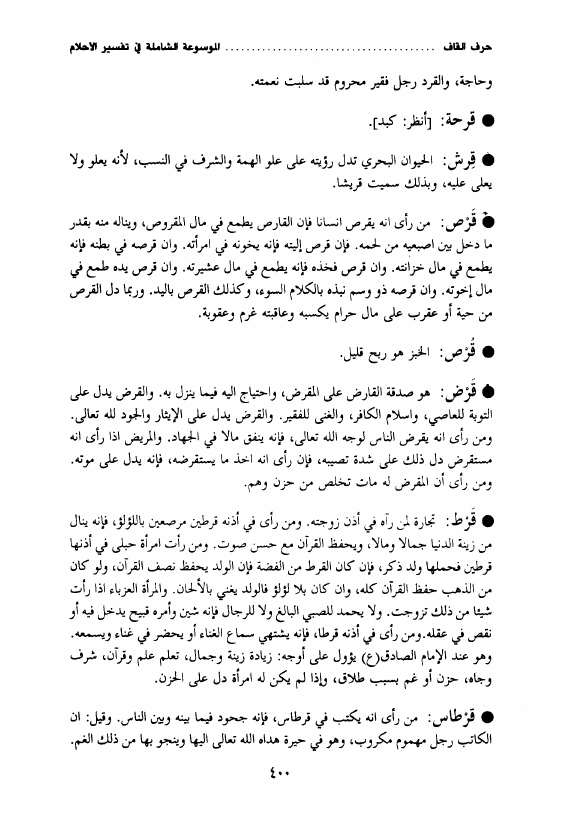 حرف القاف ........................................ الموسوعة الشاملة في تفسير الأحلام
وحاجة، والقرد رجل فقير محروم قد سلبت نعمته.
● قرحة: [أنظر: كبد].
● قِرش: الحيوان البحري تدل رؤيته على علو الهمة والشرف في النسب، لأنه يعلو ولا
يعلى عليه، وبذلك سميت قريشا.
● قَرْص: من رأى انه يقرص انسانا فإن القارص يطمع في مال المقروص، ويناله منه بقدر
ما دخل بين اصبعيه من لحمه. فإن قرص إليته فإنه يخونه في امرأته. وان قرصه في بطنه فإنه
يطمع في مال خزانته. وان قرص فخذه فإنه يطمع في مال عشيرته. وان قرص يده طمع في
مال إخوته. وان قرصه ذو وسم نبذه بالكلام السوء، وكذلك القرص باليد. وربما دل القرص
من حية أو عقرب على مال حرام يكسبه وعاقبته غرم وعقوبة.
● قُرْص: الخبز هو ربح قليل.
● قَرْض: هو صدقة القارض على المقرض، واحتياج اليه فيما ينزل به. والقرض يدل على
التوبة للعاصي، واسلام الكافر، والغنى للفقير. والقرض يدل على الإيثار والجود لله تعالى.
ومن رأى انه يقرض الناس لوجه الله تعالى، فإنه ينفق مالا في الجهاد. والمريض اذا رأى انه
مستقرض دل ذلك على شدة تصيبه، فإن رأى انه اخذ ما يستقرضه، فإنه يدل على موته.
ومن رأى أن المقرض له مات تخلص من حزن وهم.
● قَرْط: تجارة لمن رآه في أذن زوجته. ومن رأى في أذنه قرطين مرصعين باللؤلؤ، فإنه ينال
من زينة الدنيا جمالا ومالا، ويحفظ القرآن مع حسن صوت. ومن رأت امرأة حبلى في أذنها
قرطين فحملها ولد ذكر، فإن كان القرط من الفضة فإن الولد يحفظ نصف القرآن، ولو كان
من الذهب حفظ القرآن كله، وان كان بلا لؤلؤ فالولد يغني بالألحان. والمرأة العزباء اذا رأت
شيئا من ذلك تزوجت. ولا يحمد للصبي البالغ ولا للرجال فإنه شين وأمره قبيح يدخل فيه أو
نقص في عقله. ومن رأى في أذنه قرطا، فإنه يشتهي سماع الغناء أو يحضر في غناء ويسمعه.
وهو عند الإمام الصادق(ع) يؤول على أوجه: زيادة زينة وجمال، تعلم علم وقرآن، شرف
وجاه، حزن أو غم بسبب طلاق، وإذا لم يكن له امرأة دل على الحزن.
● قرْطاس: من رأى انه يكتب في قرطاس، فإنه جحود فيما بينه وبين الناس. وقيل: ان
الكاتب رجل مهموم مكروب، وهو في حيرة هداه الله تعالى اليها وينجو بها من ذلك الغم.
٤٠٠